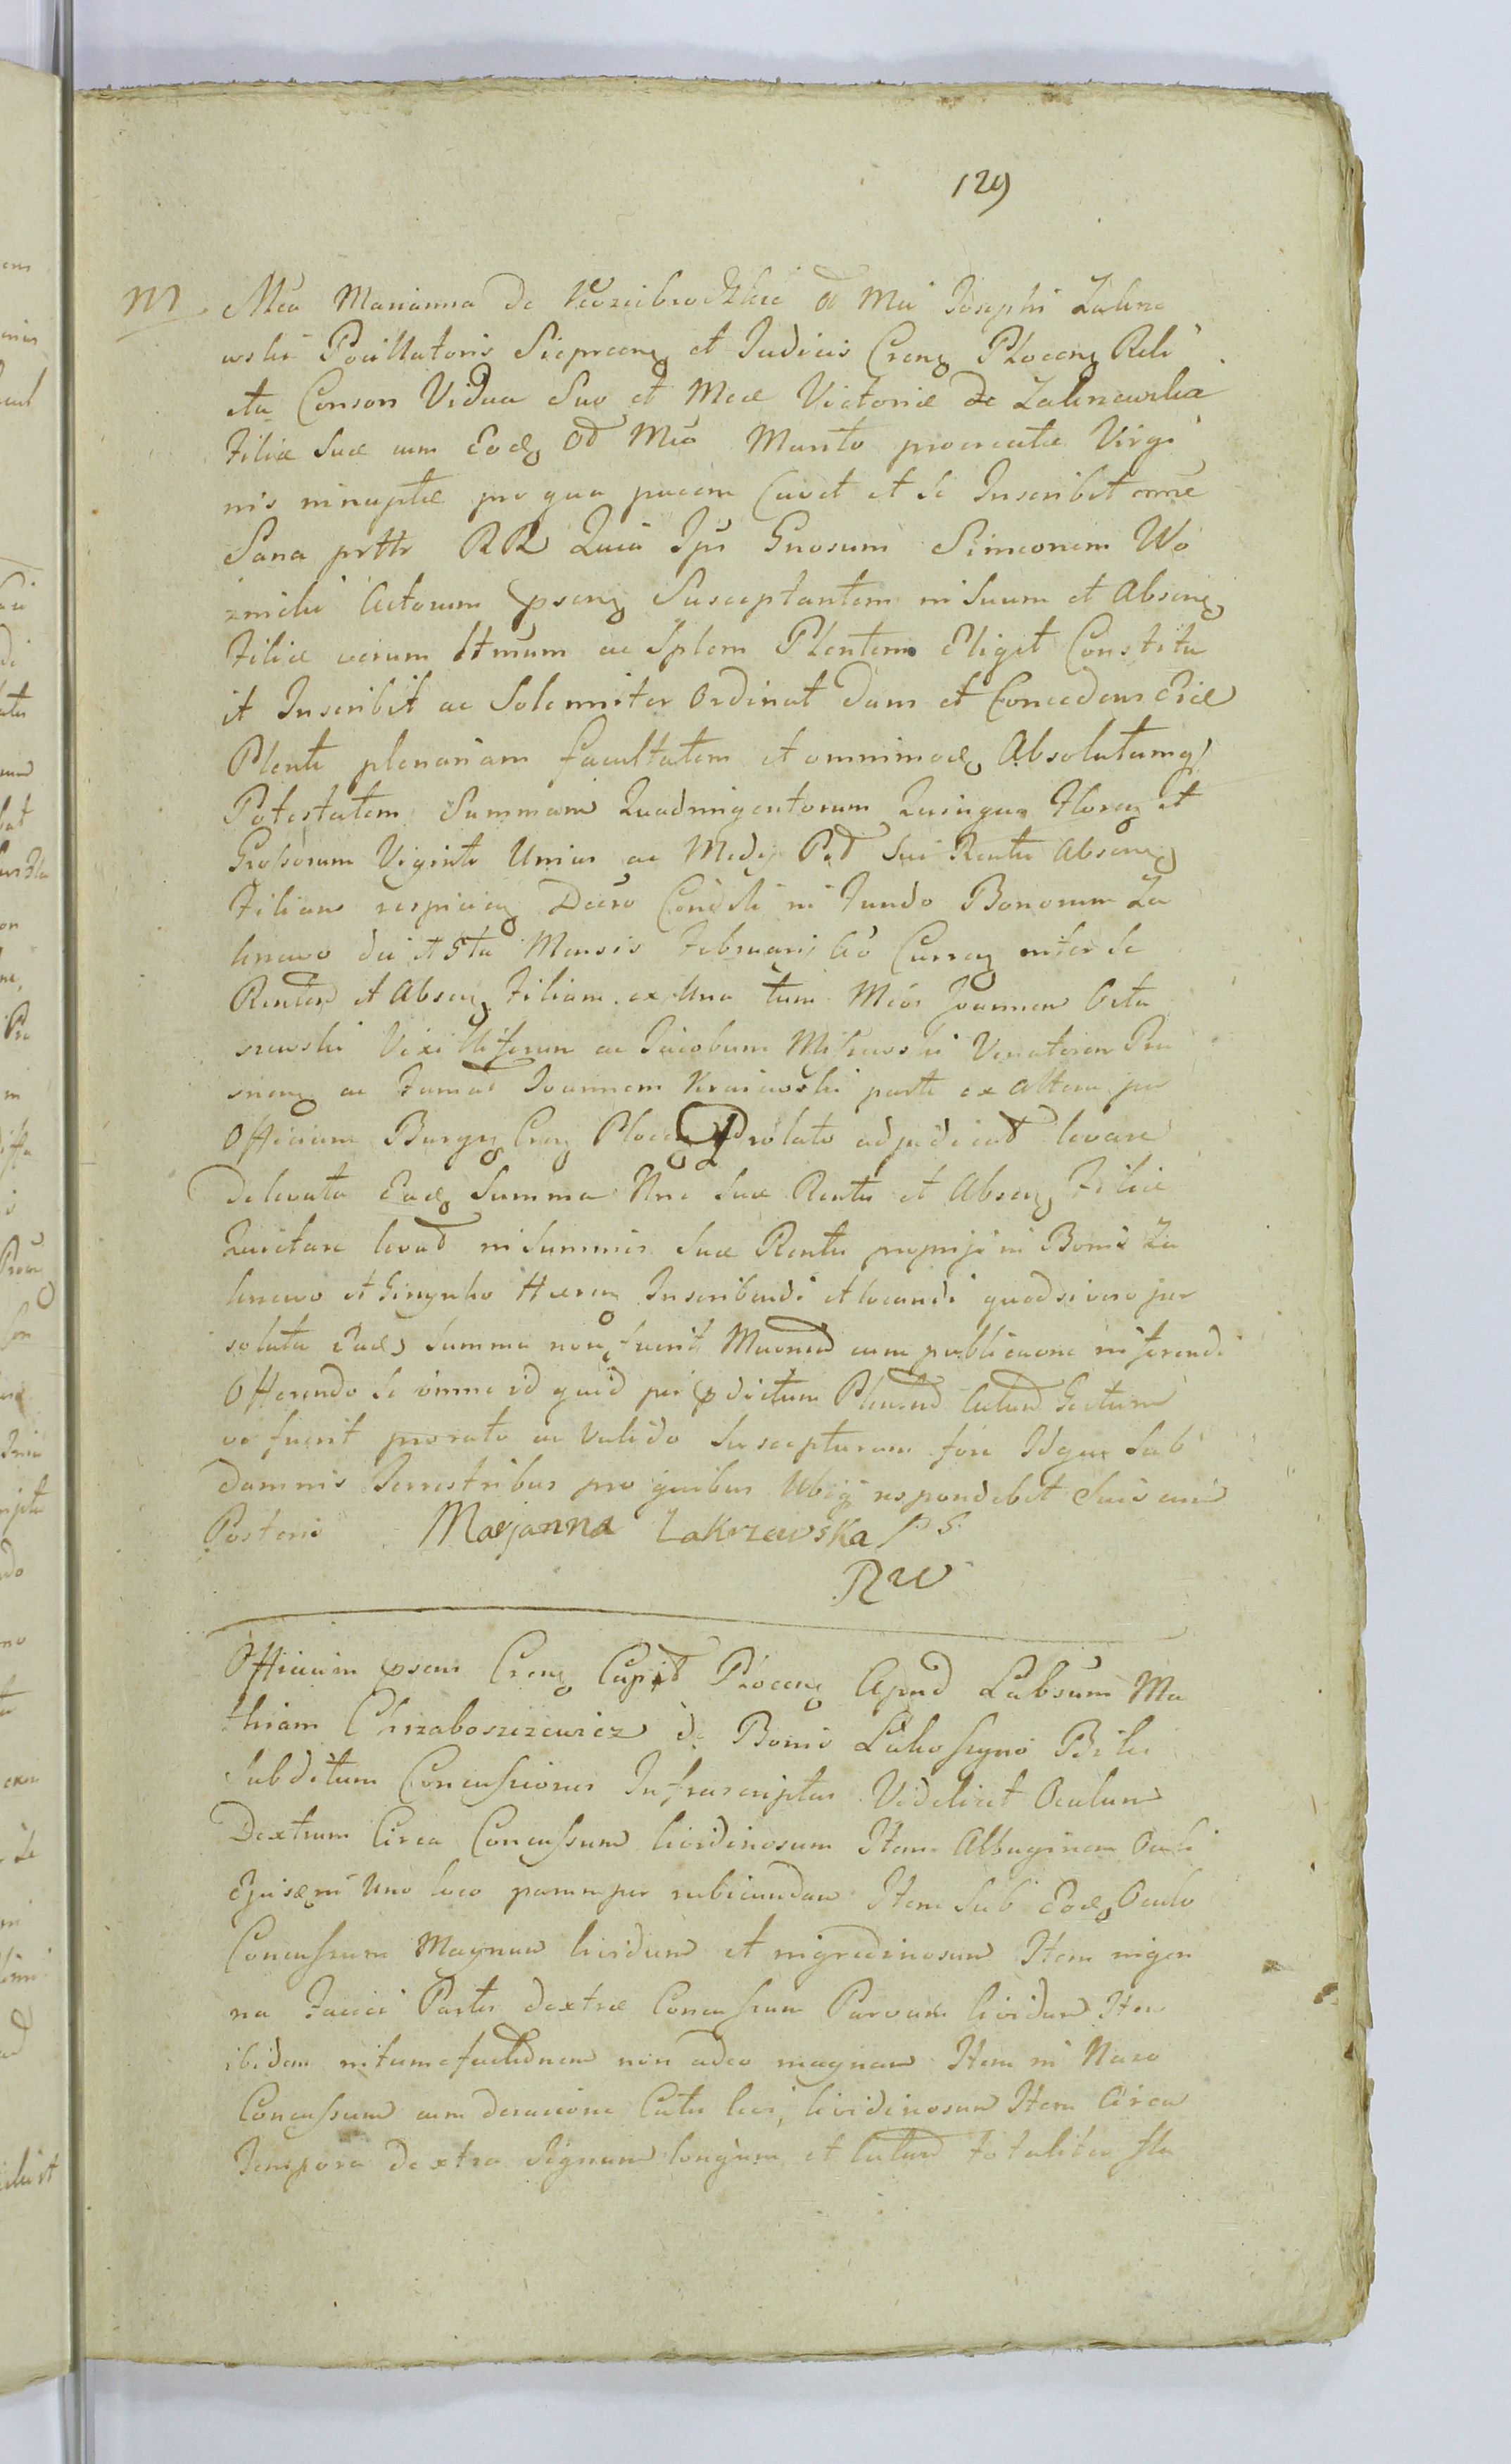 129
M. Mca Marianna de Koziebrodzkie Od Mci Josephi Zakrze
wski Pocillatoris Sieprcens et Judicis Crens Plocens Reli
cta Consors Vidua Suo et Mcæ Victoriæ de Zakrzewskie
Filiæ Suæ cum Eode Od Mco Marito procreatæ Virgi
nis innuptæ pro qua pacem Cavet et se Inscribit ome
Sana prttr RR Quia Ipsi Gnosum Simeonem Wo
znicki Actorum psens Susceptantem in Suum et Absens
Filiæ verum Ltmum ac Splem Plentem Eligit Constitu
it Inscribit ac Solemniter Ordinat Dans et Concedens Eid
Plenti plenariam facultatem et omnimod Absolutamq
Potestatem Summam Quadringentorum Quinqua Floren et
Grossorum Viginti Unius ac Medij Pol Sui Rentis Absens
Filiam respicien Decro Condli in Fundo Bonorum Za
krzewo die 15ta Mensis Februarij Ao Curren inter Se
Rentem et Absen Filiam ex Una tum Mcos Joannem Osta
szewski Vexilliferum ac Jacobum Miszewski Venatorem Ra
snens ac Famat Joannem Krajewski parte ex altera per
Officium Burgg Cren Plocen Prolato adjudicat levare
De levata Eade Summa Nne Suæ Rentis et Absen Filiæ
Quietare levat in Summis Suæ Rentis proprijs in Bonis Za
krzewo et Gizynko Hæren Inscribendi et locandi quod si vero per
soluta Eade Summa non fuerit cum publicaone inferendi
Offerendo Se omne id quid per pdictum Plentem Actum Gestum
ve fuerit pro rato ac Valido Suscepturam fore Idque Sub
Damnis Terrestribus pro quibus Ubiq respondebit Suis cum
Posteris Marjanna Zakrzewska P S
RW
Officium psens Crens Capit Plocens Apud Labsum Ma
thiam Chrzaboszczewicz de Bonis Lakoszyno Biki
Subditum Concussiones Infrascriptas Videlicet Oculum
Dextrum Circa Concussum lividinosum Item Albuginem Oculi
Ejusdem in Uno loco parumper rubicundam Item Sub Eode Oculo
Concussum Magnum lividum et nigredinosum Item in gen
na Faciei Partis dextræ Concussum Parvum lividum Item
ibidem intumefactionem non adeo magnam Item in Naso
Concussum cum deracione Cutis loci, lividinosum Item Circa
Tempora dextra Signum longum et latum totaliter fla